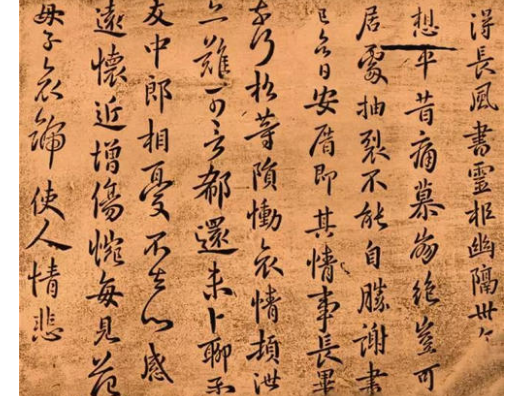 得長風書靈柩幽隔卅
想平昔痛慕崩絕豈可
居處抽裂不能自勝謝書
已日安厝即其情事長畢
松等隕慟哀情頓泄
亦難可言郗還未卜聊示
友中郎相憂不去心感
遠懷近增傷惋每見范
母子哀號使人情悲